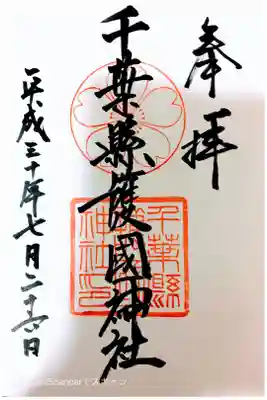 奉拝
千葉縣護國神社
平成三十年七月二十六日
千葉縣
護國
神社印